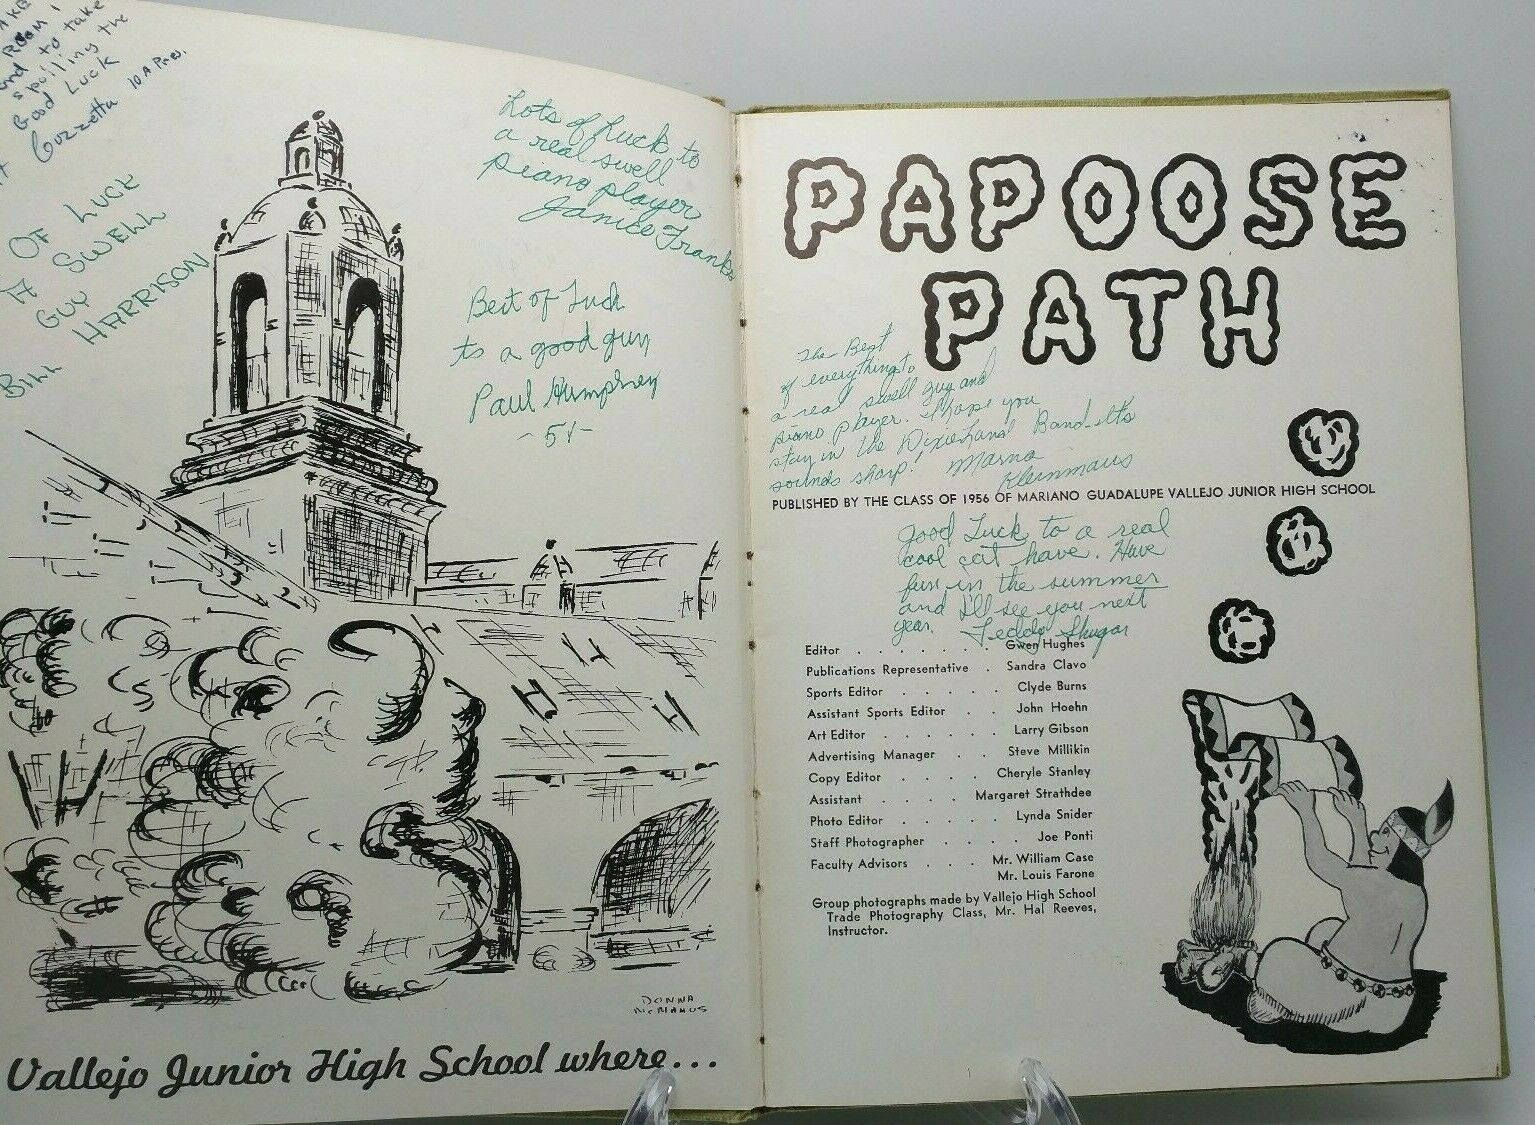 ROOM 1
and to take
spoiling the
Good Luck
Guzzetta 10A Pres.
OF LUCK
A SWELL
GUY
BILL HARRISON
Lots of Luck to
a real swell
piano player
Janice Franks
Best of Luck
to a good guy
Paul Humphrey
Vallejo Junior High School where...
DONNA
McMANUS
PAPOOSE
PATH
The Best
of everything to
a real swell guy and
piano player. I hope you
stay in the Dixieland Band-It's
sounds sharp!
Marna
Kleinmaus
PUBLISHED BY THE CLASS OF 1956 OF MARIANO GUADALUPE VALLEJO JUNIOR HIGH SCHOOL
Good Luck to a real
cool cat have. Have
fun in the summer
and I'll see you next
year. Teddy Shugar
Editor . . . . . . . Gwen Hughes
Publications Representative . Sandra Clavo
Sports Editor . . . . . Clyde Burns
Assistant Sports Editor . . John Hoehn
Art Editor . . . . . . Larry Gibson
Advertising Manager . . Steve Millikin
Copy Editor . . . . Cheryle Stanley
Assistant . . . . Margaret Strathdee
Photo Editor . . . . . Lynda Snider
Staff Photographer . . . . Joe Ponti
Faculty Advisors . . . Mr. William Case
Mr. Louis Farone
Group photographs made by Vallejo High School
Trade Photography Class, Mr. Hal Reeves,
Instructor.